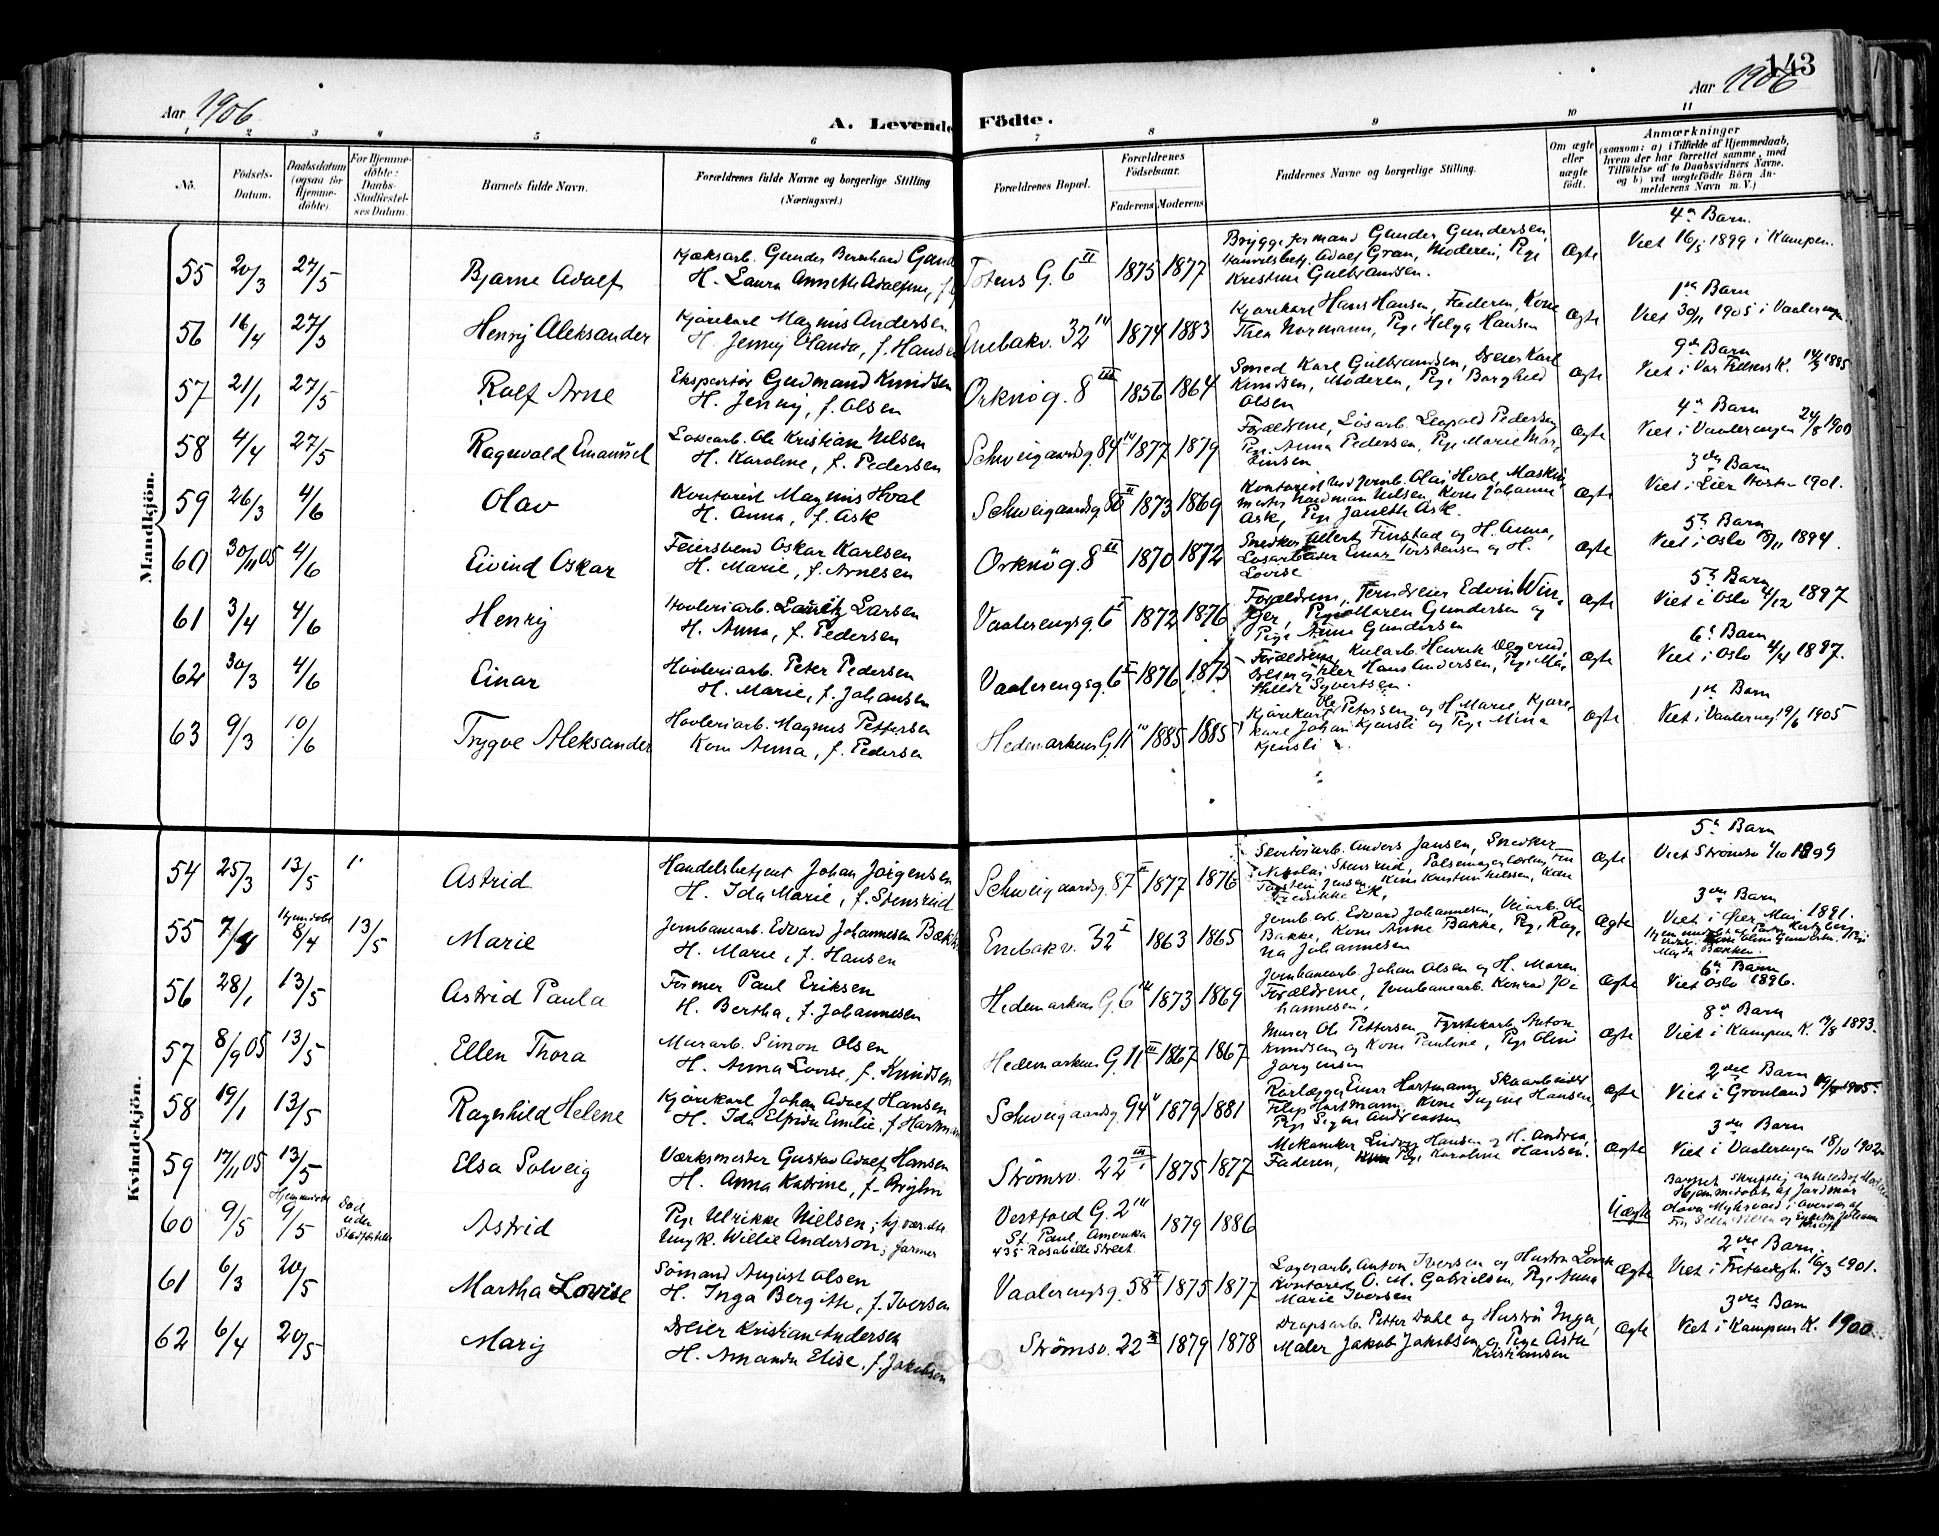 143
Aar 1906
Aar 1906
A. Levende Födte.
1 2 3 4 5 6 7 8 9 10 11
No.
Födsels-Datum.
Daabsdatum (ogsaa for Hjemme-döbte).
For Hjemme-döbte: Daabs-Stadfæstel-ses Datum.
Barnets fulde Navn.
Forældrenes fulde Navne og borgerlige Stilling (Næringsvei.)
Forældrenes Bopæl.
Forældrenes Födselsaar.
Faderens Moderens
Faddernes Navne og borgerlige Stilling.
Om ægte eller uægte födt.
Anmærkninger
(saasom: a) i Tilfælde af Hjemmedaab,
hvem der har forrettet samme, med
Tilföielse af to Daabsvidners Navne.
og b) ved uægtefödte Börn An-
melderens Navn m. V.)
Mandkjön.
55 20/3 27/5 Bjarne Adolf
Kjæksarb. Gunder Bernhard
H. Laura Annette
Totens G. 6 II 1875 1877
Bryggeformand Gunder Gundersen,
Adolf Gran, Moderen, Pige
Kristine Gulbrandsen.
Ægte
4de Barn.
Viet 16/5 1899 i Kampen.
56 16/4 27/5 Henry Aleksander
Kjørekarl Magnus Andersen
H. Jenny Olanda, f. Hansen
Enebakv. 32 IV 1874 1883
Kjørekarl Hans Hansen, Faderen, Kone
Thea Normann, Pige Helga Hansen
Ægte
1ste Barn
Viet 30/11 1905 i Vaalerengen
57 21/1 27/5 Rolf Arne
Ekspeditør Gudmand Knudsen
H. Jenny, f. Olsen
Orknøg. 8 III 1856 1864
Smed Karl Gulbrandsen, Dreier Karl
Knudsen, Moderen, Pige Borghild
Olsen
Ægte
9de Barn
Viet i Vor Frelsers K. 1885
58 4/4 27/5 Ragnvald Emanuel
Lossearb. Ole Kristian Nilsen
H. Karoline, f. Pedersen
Schweigaardsg. 84 IV 1877 1879
Forældrene, Løsarb. Leopold Pedersen
Pige Anna Pedersen, Pige Marie Mar-
tinsen
Ægte
4de Barn
Viet i Vaalerengen 24/8 1900
59 26/3 4/6 Olav
Kontorist Magnus Hval
H. Anna, f. Ask
Schweigaardsg. 80 II 1873 1869
Kontorist ved Jernb. Olai Hval, Maskin-
mester Nordman Nilsen, Kone Johanne
Ask, Pige Janette Ask.
Ægte
3die Barn
Viet i Lier 1901.
60 30/11 05 4/6 Eivind Oskar
Feiersvend Oskar Karlsen
H. Marie, f. Arnesen
Orknøg. 8 III 1870 1872
Snedker Albert Finstad og H. Anna,
Løsarbeider Einar Torstensen og H.
Lovise
Ægte
5te Barn
Viet i Oslo 18/11 1894.
61 3/4 4/6 Henry
Høvleriarb. Lauritz Larsen
H. Anna, f. Pedersen
Vaalerengsg. 6 I 1872 1876
Forældrene, Jerndreier Edvin Win-
ger, Pige Maren Gundersen og
Pige Anne Gundersen
Ægte
5te Barn
Viet i Oslo 4/12 1897
62 30/3 4/6 Einar
Høvleriarb. Peter Pedersen
H. Marie, f. Johansen
Vaalerengsg. 6 I 1876 1875
Forældrene, Kularb. Henrik
Hans Andersen, Pige Ma-
thilde Syvertsen.
Ægte
6te Barn
Viet i Oslo 4/4 1897.
63 9/3 10/6 Trygve Aleksander
Høvleriarb. Magnus Pettersen
Kone Anna, f. Pedersen
Hedemarkens G. 11 IV 1885 1885
Kjørekarl Ole Petersen og H. Marie, Kjøre-
karl Johan Kjensli og Pige Mina
Kjensli
Ægte
1ste Barn
Viet i Vaalereng 19/6 1905
Kvindekjön.
54 25/3 13/5 Astrid
Handelsbetjent Johan Jørgensen
H. Ida Marie, f. Stensrud
Schweigaardsg. 87 II 1877 1876
Anders Jansen, Snedker
Nikolai Stensrud,
Torstein Jensen, Kone Kristine Nilssen, Kone
Fredrikke Ek,
Ægte
5te Barn
Viet Strømsø 1/10 1899
55 7/4 Hjemdøbt 8/4 13/5 Marie
Jernbanearb. Edvard Johannesen Bække
H. Marie, f. Hansen
Enebakv. 32 I 1863 1865
Jernb.arb. Edvard Johannesen, Veiarb. Ole
Bakke, Kone Anne Bakke, Pige Rag-
na Johannesen
Ægte
3die Barn
Viet i Øier Mai 1891.
56 28/1 13/5 Astrid Paula
Former Paul Eriksen
H. Bertha, f. Johannesen
Hedemarkens G. 6 IV 1873 1869
Jernbanearb. Johan Olsen og H. Maren
Forældrene, Jernbanearb. Konrad Jo-
hannesen,
Ægte
6te Barn
Viet Oslo 1896.
57 8/9 05 13/5 Ellen Thora
Murarb. Simon Olsen
H. Anna Lovise, f. Knudsen
Hedemarkens G. 11 III 1867 1867
Murer Ole Pettersen, Fyrstikarb. Anton
Knudsen og Kone Pauline, Pige Oline
Jørgensen
Ægte
8de Barn
Viet i Kampens K. 1893.
58 19/1 13/5 Ragnhild Helene
Kjørekarl Johan Adolf Hansen
H. Ida Elfrida Emilie, f. Hartman
Schweigaardsg. 94 II 1879 1881
Rørlægger Einar Hartmann, Skoarbeider
Filip Hartmann, Kone Ingine Hansen,
Pige Signe Andreassen
Ægte
2det Barn
Viet i Grønland 1905.
59 17/11 05 13/5 Elsa Solveig
Værksmester Gustav Adolf Hansen
H. Anna Katrine, f. Bryhn
Strømsv. 22 III 1875 1877
Mekaniker Ludvig Hansen og H. Andrea,
Faderen, Pige Karoline Hansen.
Ægte
3die Barn
Viet i Vaalerengen 18/10 1902
60 9/5 Hjemmedøbt 9/5 Død uden Stadfæstelse Astrid
Pige Ulrikke Nielsen; hj.værende
Ungk. Willie Anderson; farmer
Vestfold G. 2 IV
St. Paul, Amerika
435 Rosabelle Street.
1879 1886
Uægte
Hjemmedøbt af Jordmor
61 6/3 20/5 Martha Lovise
Sømand August Olsen
H. Inga Bergitte, f. Iversen
Vaalerengsg. 58 II 1875 1877
Lagerarb. Anton Iversen og Hustru Lovise
Kontorist O. M. Gabrielsen, Pige Anna
Marie Iversen
Ægte
2det Barn.
Viet i Trefoldigh. 16/3 1901.
62 6/4 20/5 Mary
Dreier Kristian Andersen
H. Amanda Elise, f. Jakobsen
Strømsv. 22 II 1879 1878
Petter Dahl og Hustru Inga,
Maler Jakob Jakobsen og Pige Asta
Kristiansen
Ægte
3die Barn
Viet i Kampens K. 1900